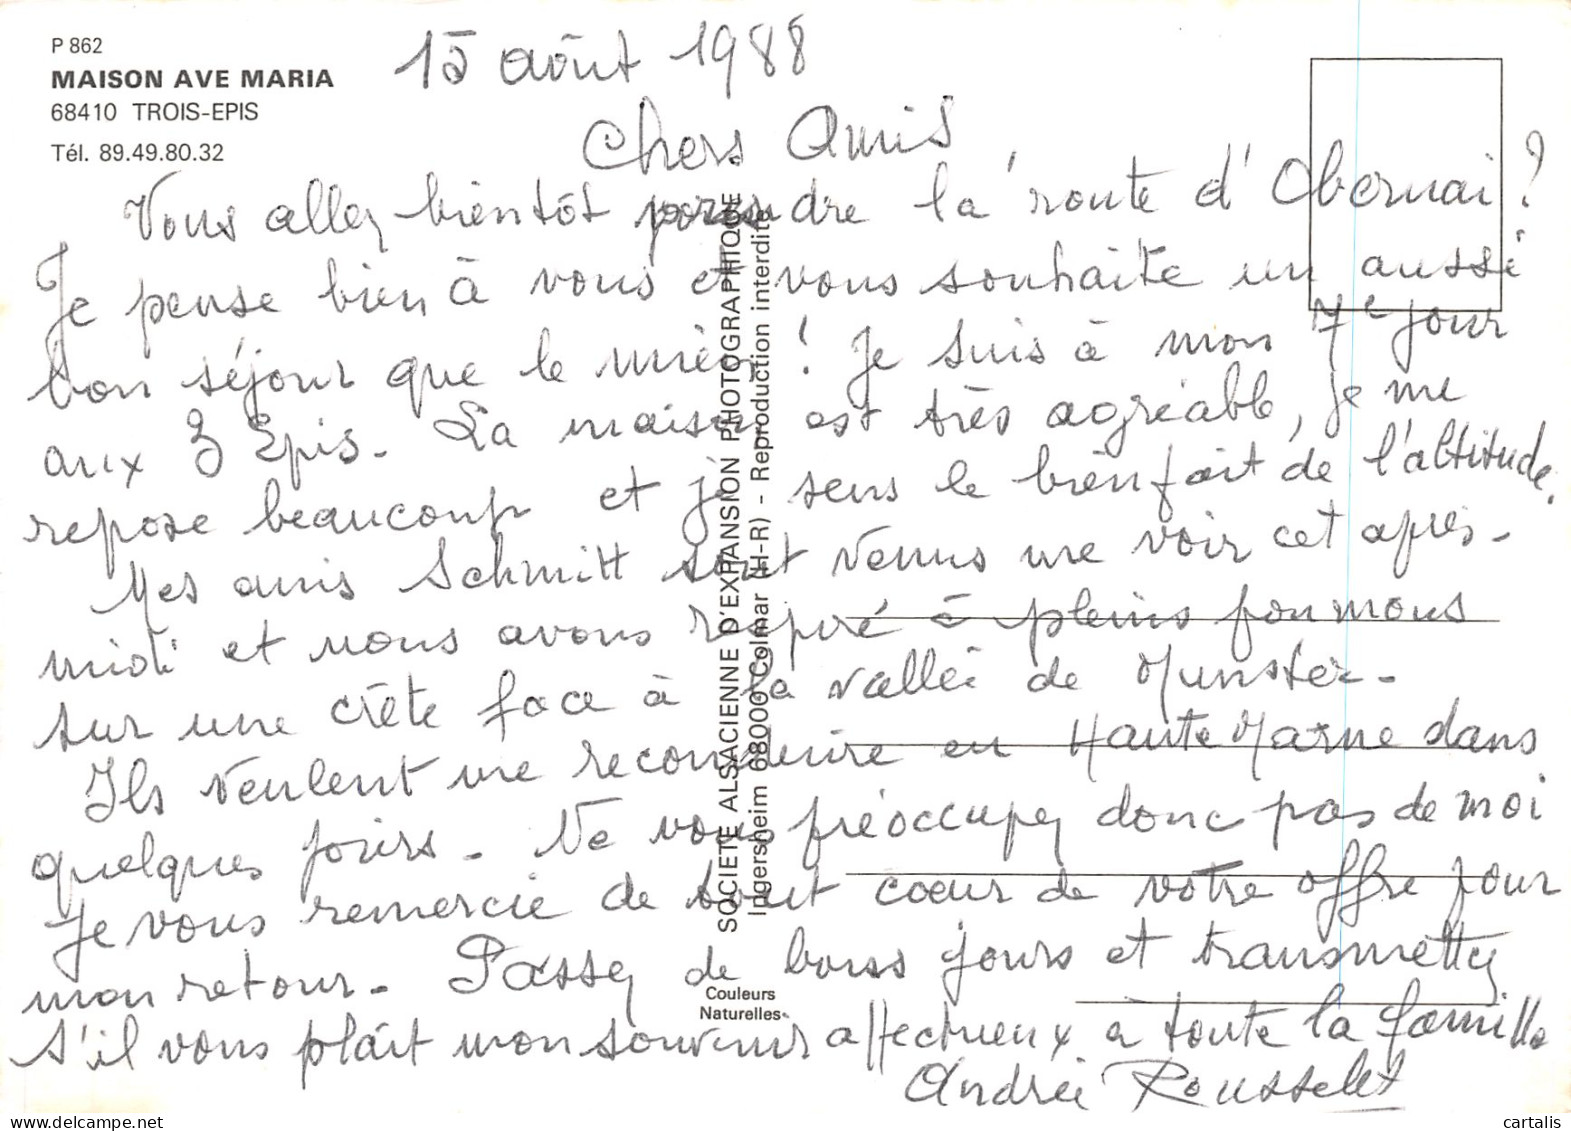 P 862
MAISON AVE MARIA
68410 TROIS-EPIS
Tél. 89.49.80.32
15 août 1988
Chers Amis
Vous allez bientôt prendre la route d'Obernai ?
Je pense bien à vous et vous souhaite un aussi
bon séjour que le mien ! Je suis à mon 7e jour
aux 3 Epis. La maison est très agréable, je me
repose beaucoup et je sens le bienfait de l'altitude.
Mes amis Schmitt sont venus me voir cet après-
midi et nous avons respiré à pleins poumons
sur une crête face à la vallée de Munster.
Ils veulent me reconduire en Haute Marne dans
quelques jours. Ne vous préoccupez donc pas de moi
Je vous remercie de tout coeur de votre offre pour
mon retour. Passez de bons jours et transmettez
s'il vous plaît mon souvenir affectueux à toute la famille
Andrée Rousselet
SOCIETE ALSACIENNE D'EXPANSION PHOTOGRAPHIQUE
Ingersheim 68000 Colmar (H-R) - Reproduction interdite
Couleurs
Naturelles
cartalis